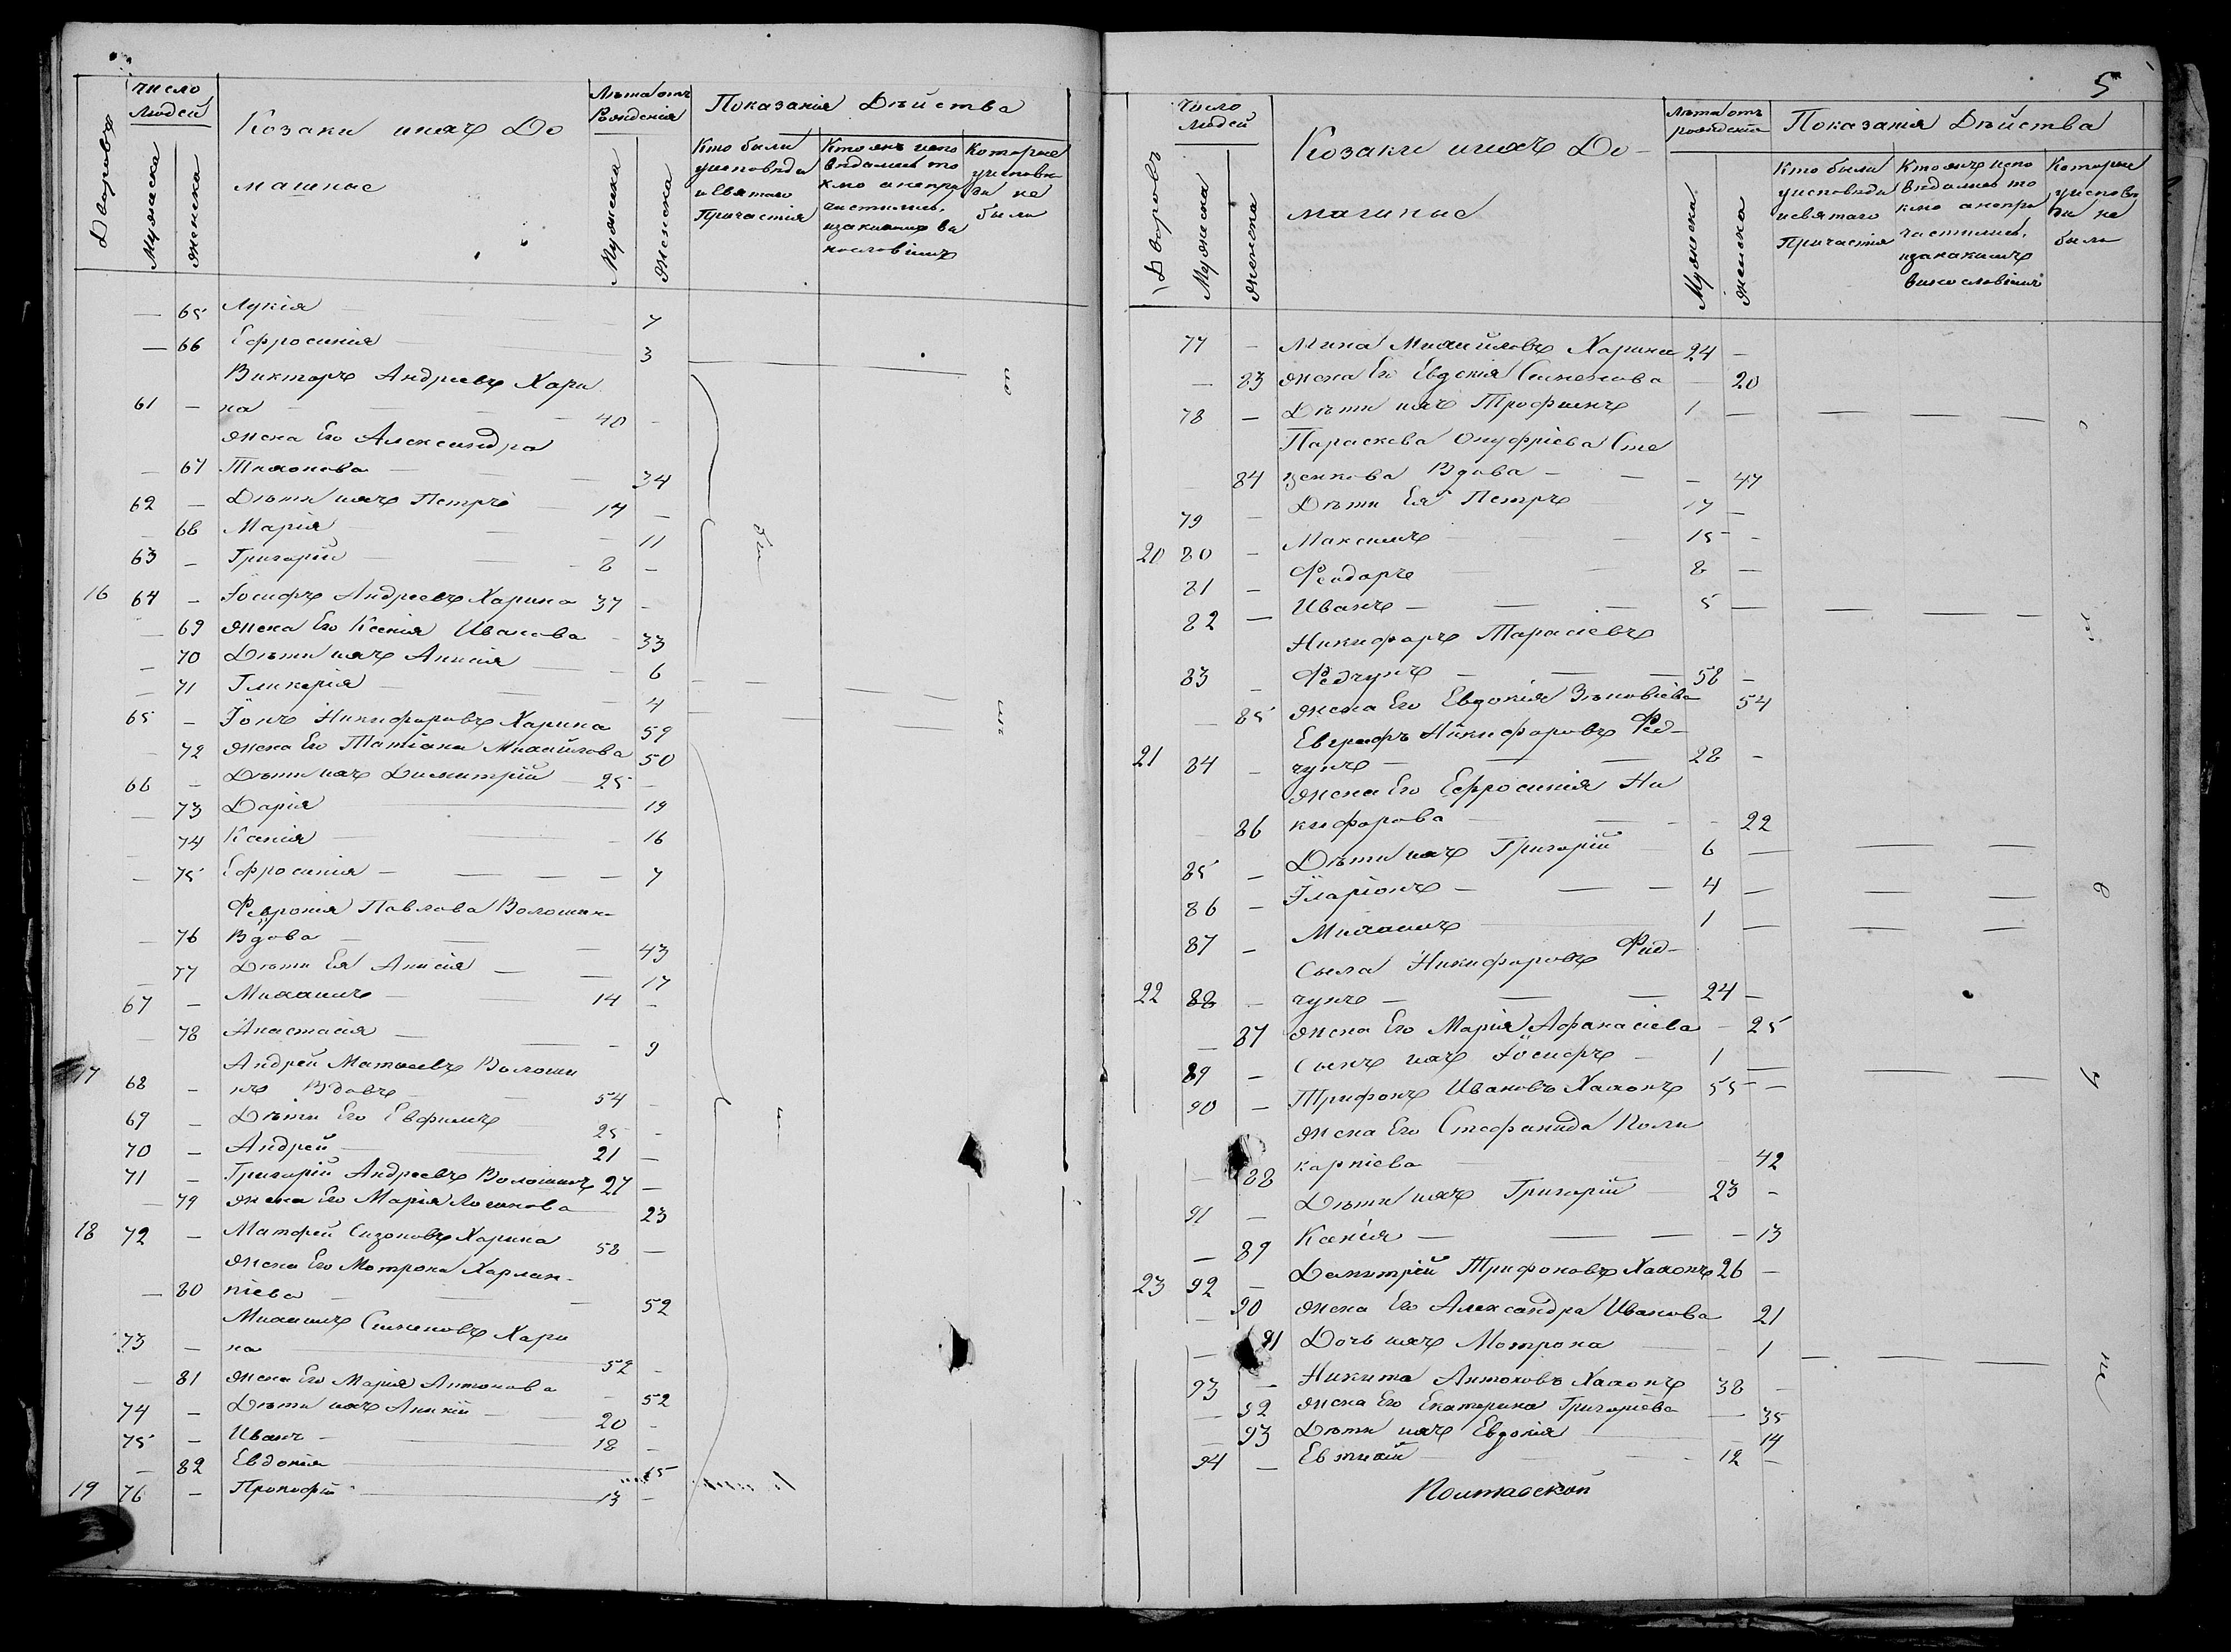 Дворовъ
число Людей
Мужеска
Женска
Козаки ихъ До
машные
Лѣта отъ Рождения
Мужеска
Женска
Показания Дѣйства
Кто были
у исповѣди
и Святаго
Причастия
Кто
кмо а непри
частились,
Которые
не
были
— 65 Лукія — 7
— 66 Ефросинія 3
Викторъ Андреевъ Хари
61 — на — 40 —
жена Его Александра
— 67 Тихонова — 34
62 — Дѣти ихъ Петръ — 14 —
— 68 Марія — 11
63 — Григорій — 8 —
16 64 — Іосифъ Андреевъ Харина 37 —
— 69 жена Его Ксенія Иванова — 33
— 70 Дѣти ихъ Анисія — 6
— 71 Гликерія — 4
65 — Іонъ Никифоровъ Харина 59
— 72 жена Его Татіана Михайлова 50
66 — Дѣти ихъ Димитрій — 25 —
— 73 Дарія 19
— 74 Ксенія — 16
— 75 Ефросинія — 7
Феврония Павлова Волошин-
— 76 Вдова — 43
— 77 Дѣти Ея Анисія — 17
67 — Михаилъ — 14 —
— 78 Анастасія — 9
Андрей Матвеевъ Волоши
17 68 — нъ Вдовъ 54 —
69 — Дѣти Его Евфимъ 25 —
70 — Андрей 21 —
71 — Григорій Андреевъ Волошинъ 27 —
— 79 жена Его Марія Логинова 23
18 72 — Матфей Сизоновъ Харина 58 —
жена Его Мотрона Харлам-
— 80 піева — 52
Михаилъ Симеоновъ Хари
73 — на 52 —
— 81 жена Его Марія Антонова — 52
74 — Дѣти ихъ — 20 —
75 — Иванъ — 18 —
— 82 Евдокія 15
19 76 — Прокофій 13 —
5
Дворовъ
Число Людей
Мужеска
Женска
Козаки ихъ До-
машные
Лѣта отъ рождения
Мужеска
женска
Показания Дѣйства
Кто были
у исповѣди
и святаго
Причастия
Кто
кмо а непри
частились,
Которые
у исповѣ
ди не
были
77 — Мина Михайловъ Харина 24 —
— 83 жена Его Евдокія Симеонова — 20
78 — Дѣти ихъ Трофимъ 1 —
Параскева Онуфріева Сте
— 84 ценкова Вдова — 47
79 — Дѣти Ея Петръ 17 —
20 80 — Максимъ 15 —
81 — Феодоръ 8 —
82 — Иванъ — 5 —
Никифоръ Тарасіевъ
83 — Федчунъ — 58 —
— 85 жена Его Евдокія Зѣновіева 54
Евграфъ Никифоровъ Фед-
21 84 — чунъ — 28 —
жена Его Ефросинія Ни
— 86 кифорова — 22
85 — Дѣти ихъ Григорій 6 —
86 — Іларіонъ — 4 —
87 — Михаилъ 1 —
Сыла Никифоровъ Фид-
22 88 — чунъ — 24 —
— 87 жена Его Марія Афанасіева — 25
89 — Сынъ ихъ Іосифъ 1 —
90 — Трифонъ Ивановъ Хахонъ 55 —
жена Его Стефанида Поли
— 88 карпіева 42
91 — Дѣти ихъ Григорій 23 —
— 89 Ксенія — 13
23 92 — Демитрій Трифоновъ Хахонъ 26 —
— 90 жена Его Александра Иванова 21
— 91 Дочь ихъ Мотрона — 1
93 — Никита Антоновъ Хахонъ 38 —
— 92 жена Его Екатерина Григоріева — 35
— 93 Дѣти ихъ Евдокія — 14
94 — Евтихій 12 —
Полтавской